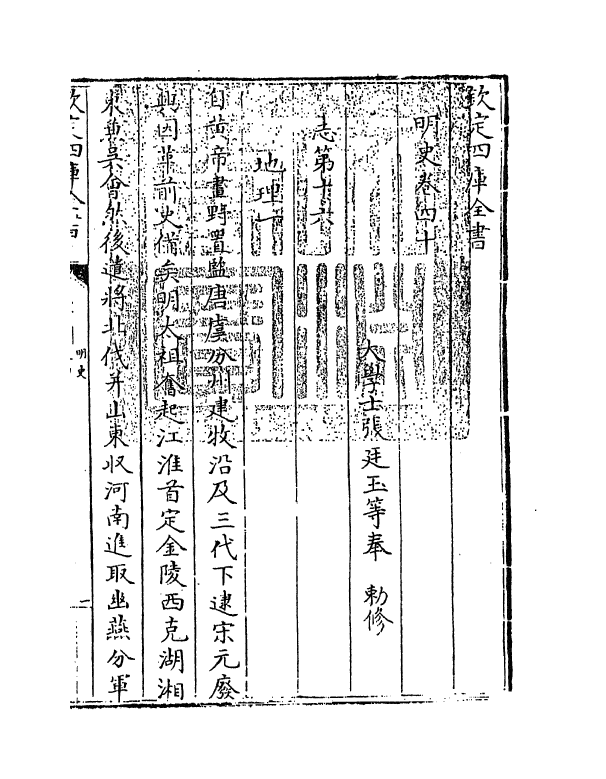 欽定四庫全書
明史卷四十
大學士張廷玉等奉　勅修
志第十六
地理一
自黄帝畫野置監唐虞分州建牧沿及三代下逮宋元廢
興因革前史備矣明太祖奮起江淮首定金陵西克湖湘
東兼吳會然後遣將北伐并山東收河南進取幽燕分軍
欽定四庫全書
明史
一